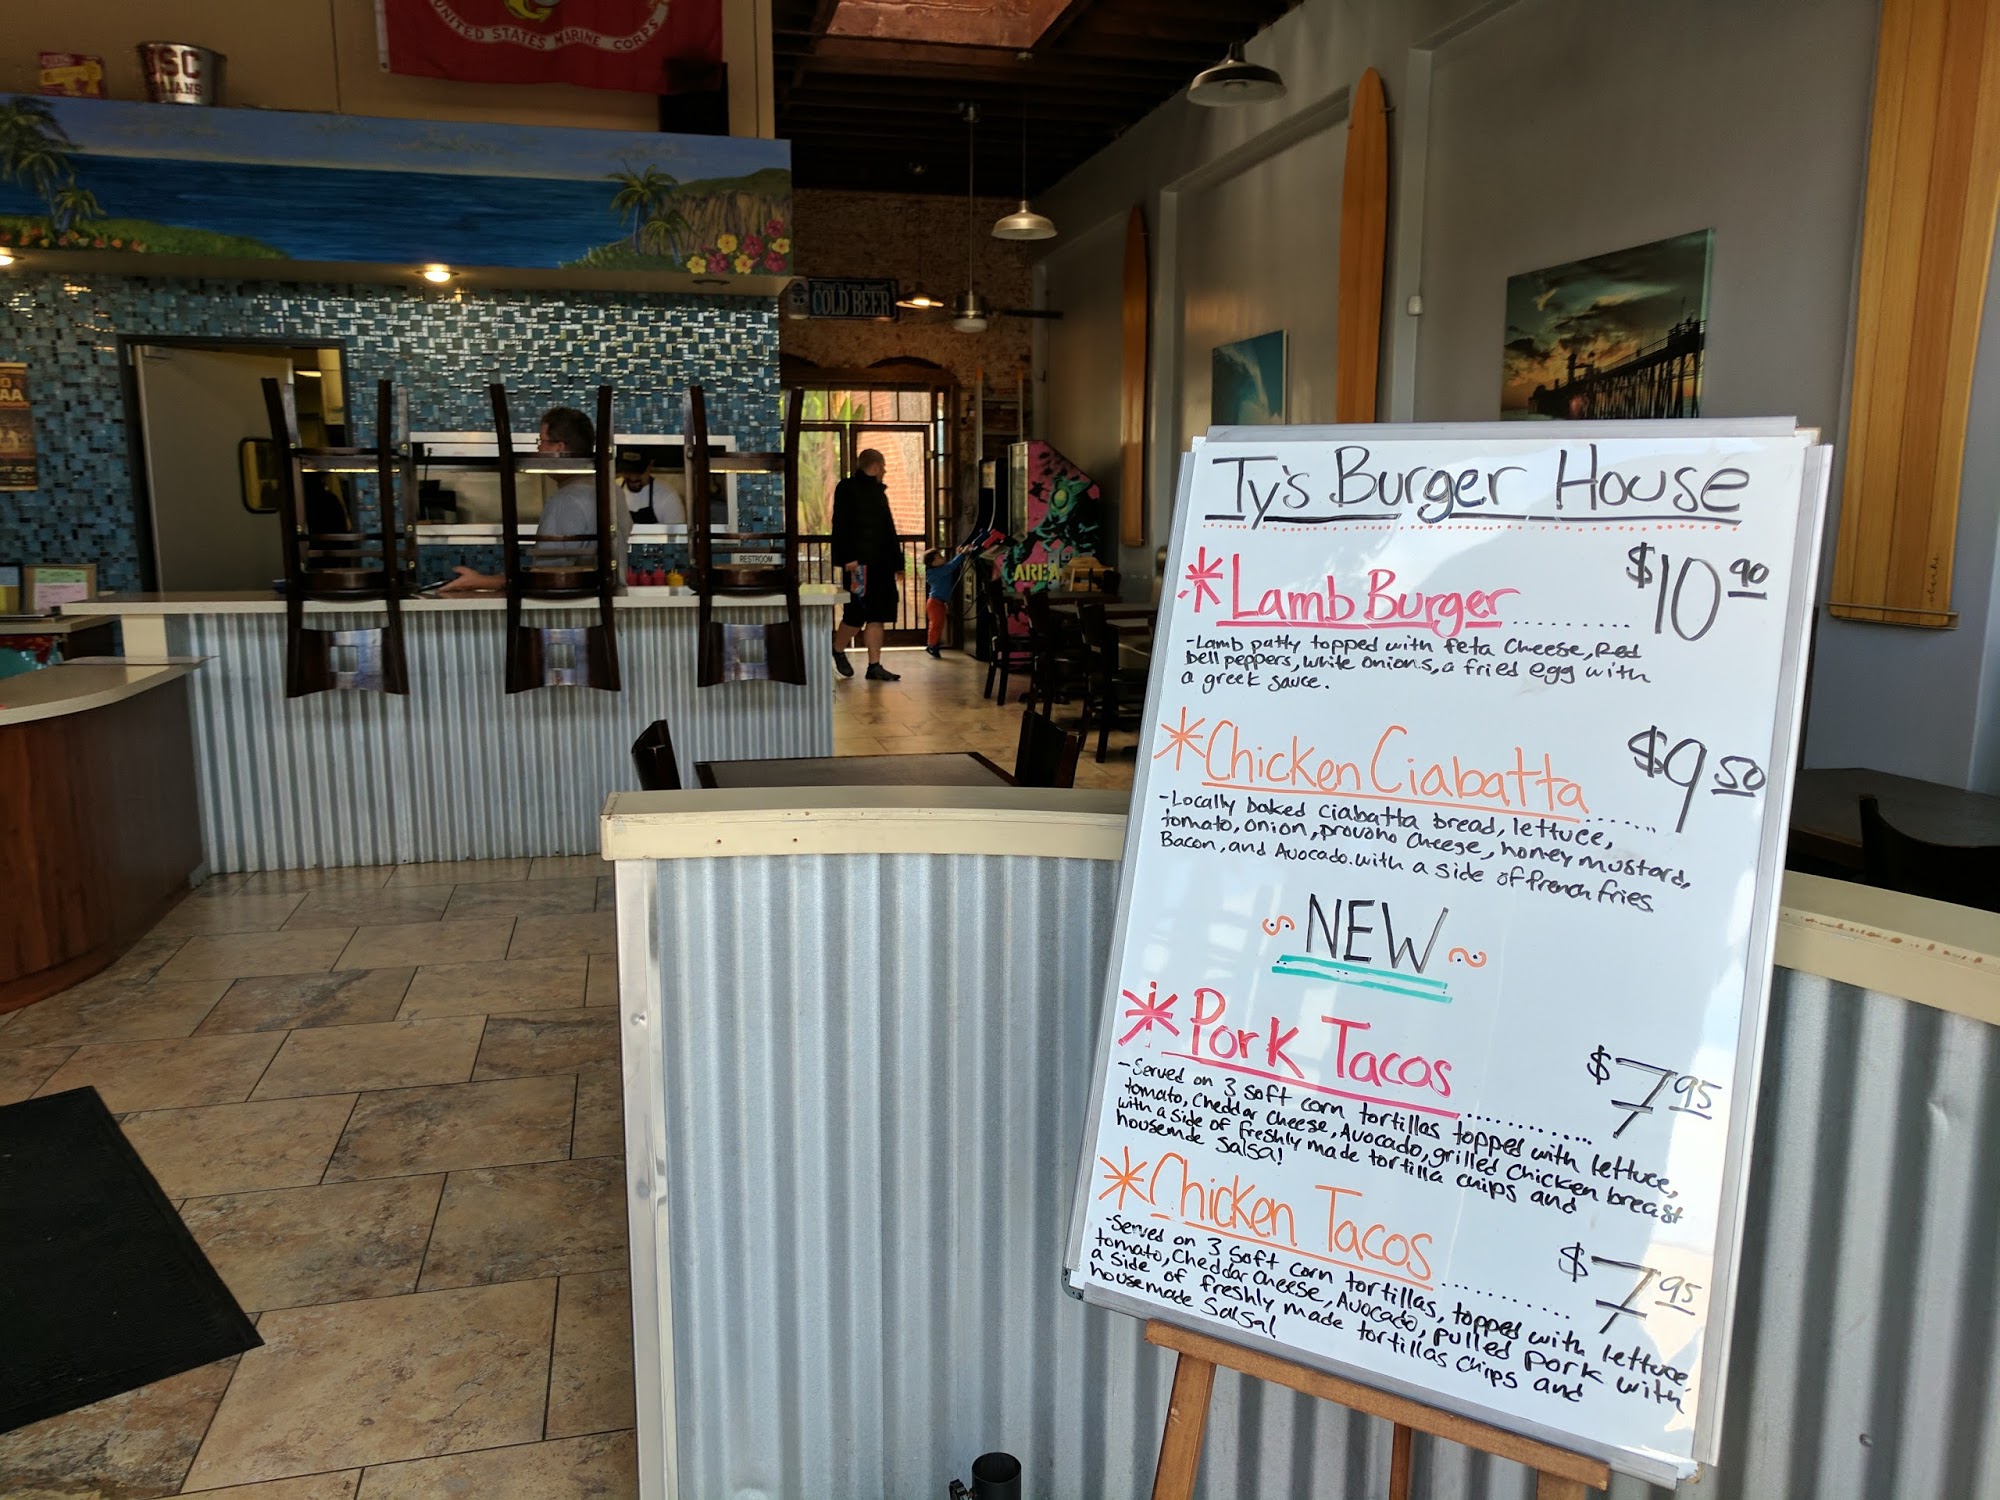 UNITED STATES MARINE CORPS
USC
TROJANS
COLD BEER
RESTROOM
AREA
Ty's Burger House
*Lamb Burger .......... $10 90
-Lamb patty topped with feta Cheese, Red
bell peppers, white onions, a fried egg with
a greek sauce.
*Chicken Ciabatta ...... $9 50
-Locally baked ciabatta bread, lettuce,
tomato, onion, provono Cheese, honey mustard,
Bacon, and Avocado. with a side of french fries
~NEW~
*Pork Tacos ............... $7 95
-Served on 3 soft corn tortillas topped with lettuce,
tomato, Cheddar Cheese, Avocado, grilled Chicken breast
with a side of freshly made tortilla chips and
housemde Salsa!
*Chicken Tacos ............... $7 95
-Served on 3 soft corn tortillas, topped with lettuce,
tomato, Cheddar Cheese, Avocado, pulled pork with
a side of freshly made tortillas Chips and
housemade Salsa!